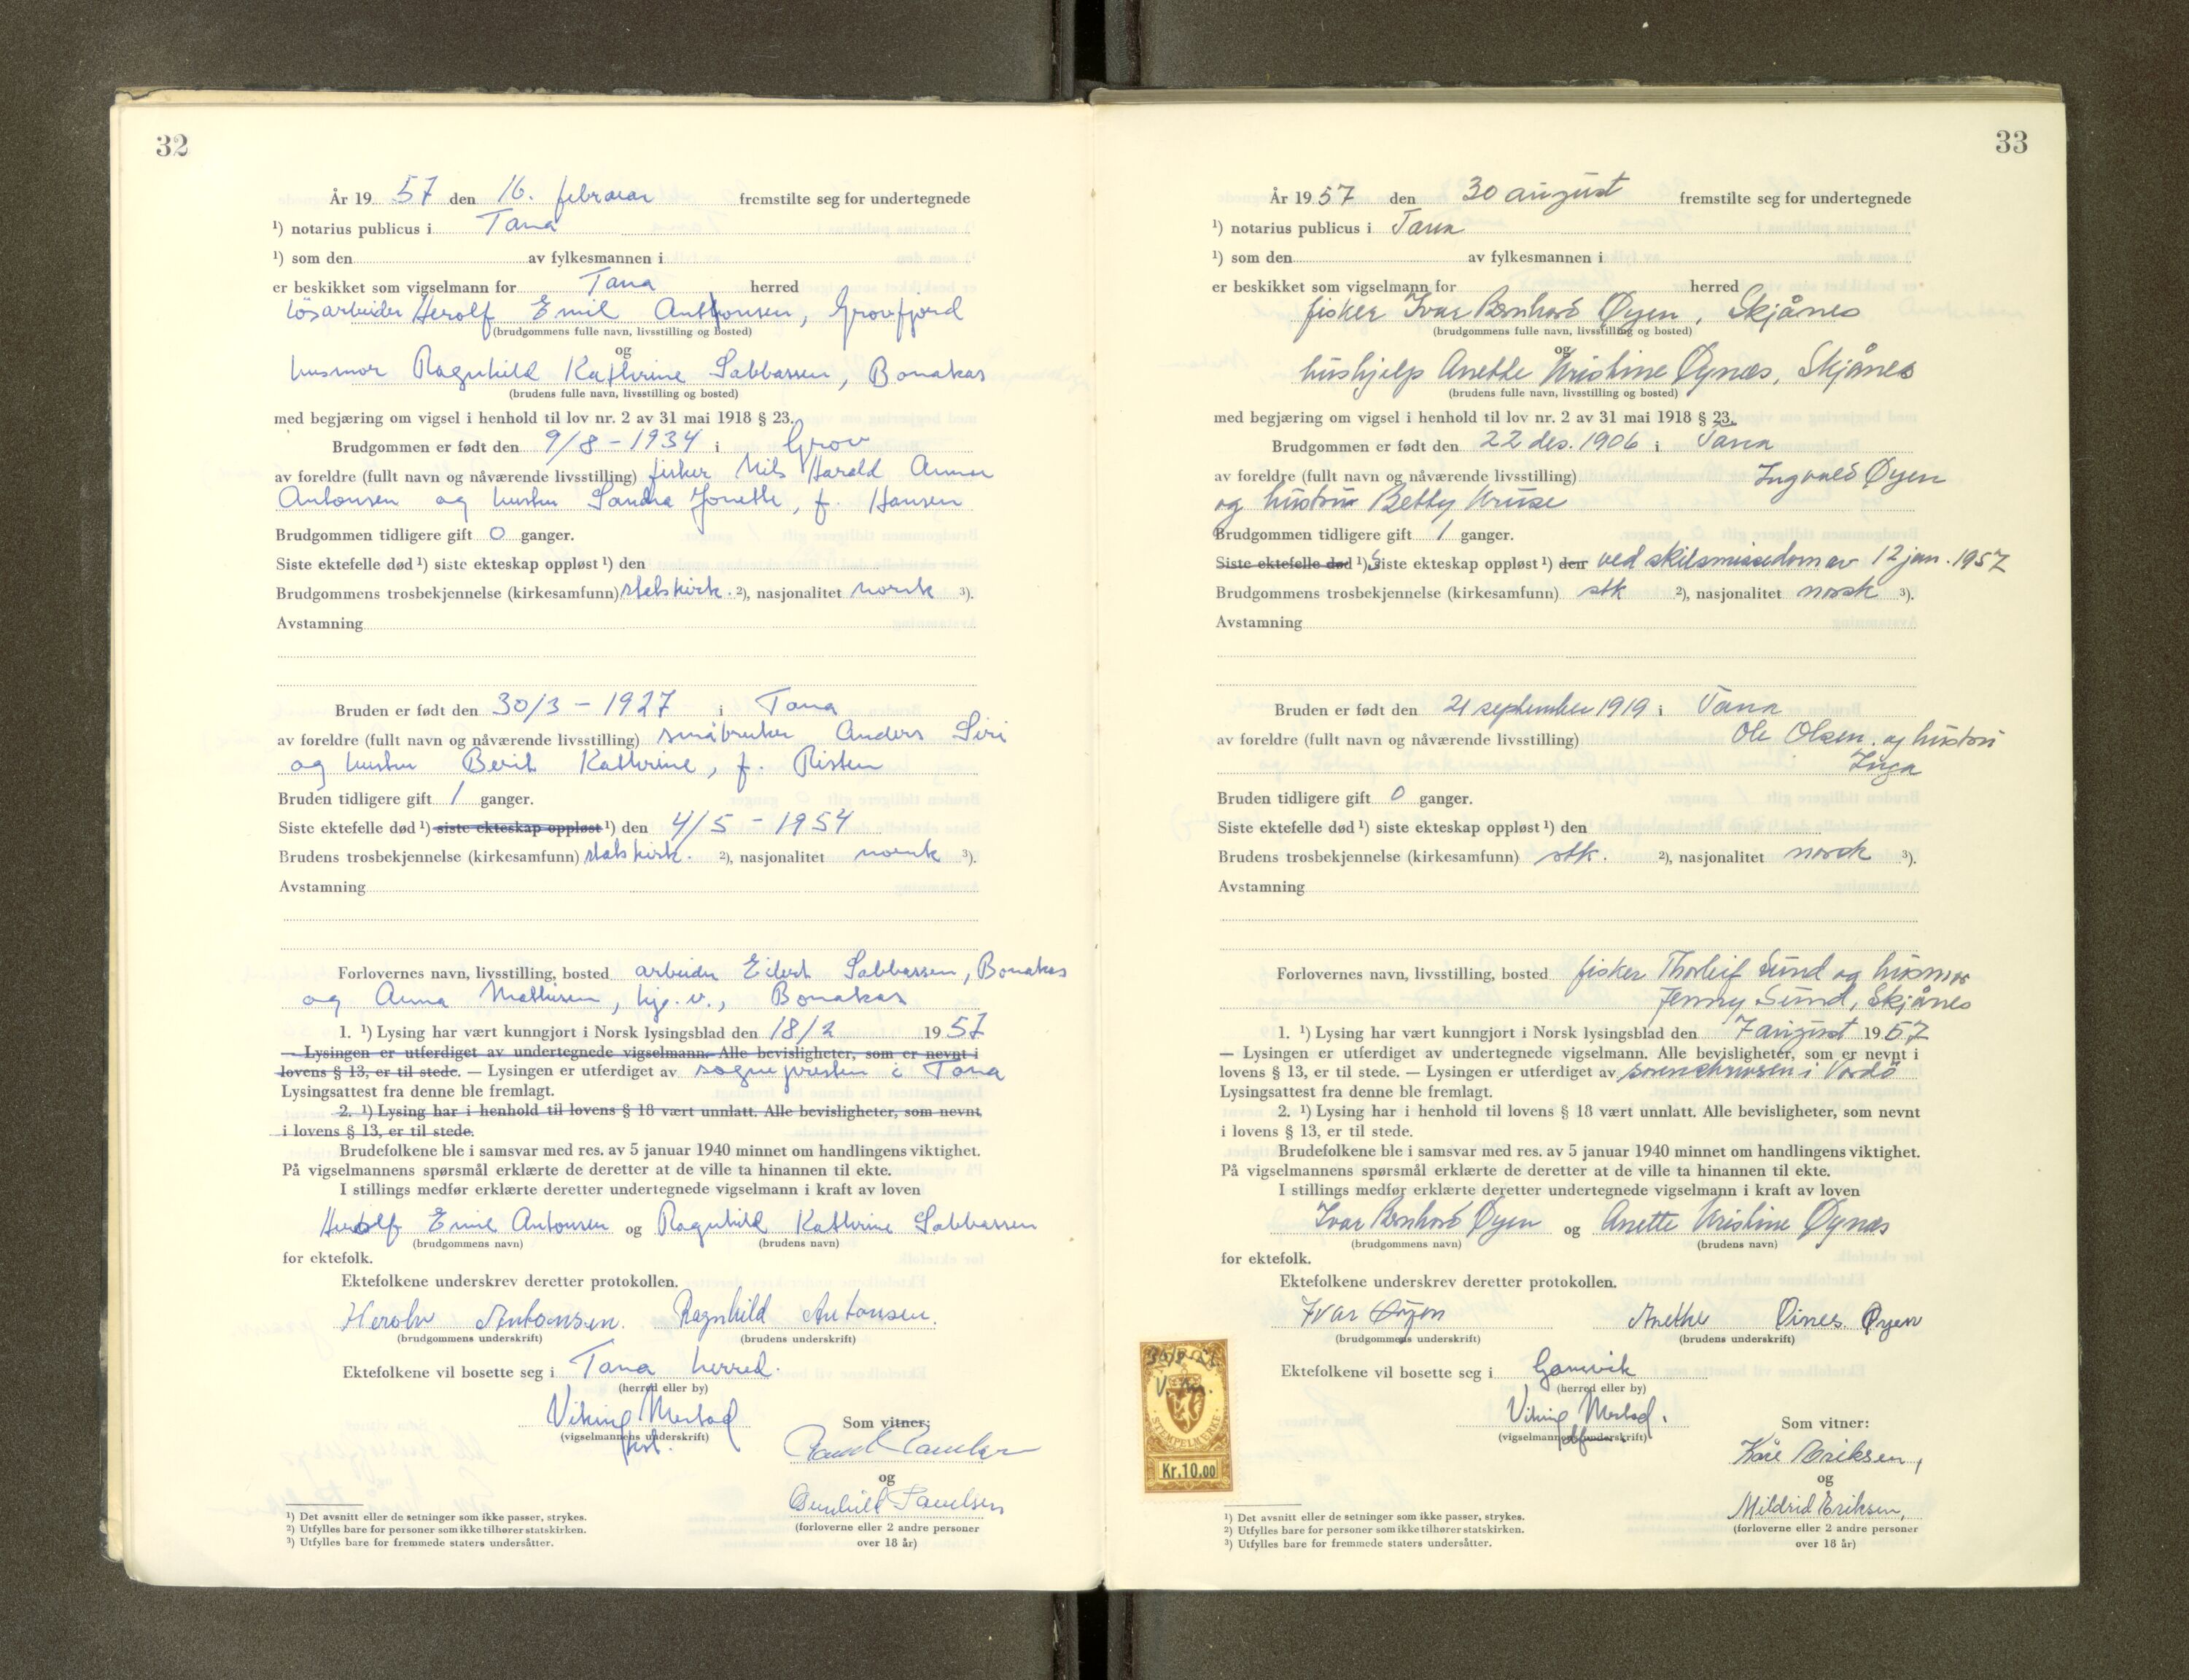 32
År 19 57 den 16. februar fremstilte seg for undertegnede
¹) notarius publicus i Tana
¹) som den av fylkesmannen i
er beskikket som vigselmann for Tana herred
løsarbeider Herolf Emil Anthonsen, Grovfjord
(brudgommens fulle navn, livsstilling og bosted)
og
husmor Ragnhild Kathrine Sabbassen, Bonakas
(brudens fulle navn, livsstilling og bosted)
med begjæring om vigsel i henhold til lov nr. 2 av 31 mai 1918 § 23.
Brudgommen er født den 9/8 - 1934 i Grov
av foreldre (fullt navn og nåværende livsstilling) fisker Nils Harald Annar
Antonsen og hustru Sandra Jonette, f. Hansen
Brudgommen tidligere gift 0 ganger.
Siste ektefelle død ¹) siste ekteskap oppløst ¹) den
Brudgommens trosbekjennelse (kirkesamfunn) statskirk. ²), nasjonalitet norsk ³).
Avstamning
Bruden er født den 30/3 - 1927 i Tana
av foreldre (fullt navn og nåværende livsstilling) småbruker Anders Siri
og hustru Berit Kathrine, f. Risten
Bruden tidligere gift 1 ganger.
Siste ektefelle død ¹) siste ekteskap oppløst ¹) den 4/5 - 1954
Brudens trosbekjennelse (kirkesamfunn) statskirk. ²), nasjonalitet norsk ³).
Avstamning
Forlovernes navn, livsstilling, bosted arbeider Eilert Sabbassen, Bonakas
og Anna Mathisen, hj.v., Bonakas
1. ¹) Lysing har vært kunngjort i Norsk lysingsblad den 18/2 19 57
— Lysingen er utferdiget av undertegnede vigselmann. Alle bevisligheter, som er nevnt i
lovens § 13, er til stede. — Lysingen er utferdiget av sognepresten i Tana
Lysingsattest fra denne ble fremlagt.
2. ¹) Lysing har i henhold til lovens § 18 vært unnlatt. Alle bevisligheter, som nevnt
i lovens § 13, er til stede.
Brudefolkene ble i samsvar med res. av 5 januar 1940 minnet om handlingens viktighet.
På vigselmannens spørsmål erklærte de deretter at de ville ta hinannen til ekte.
I stillings medfør erklærte deretter undertegnede vigselmann i kraft av loven
Herolf Emil Antonsen og Ragnhild Kathrine Sabbassen
(brudgommens navn) (brudens navn)
for ektefolk.
Ektefolkene underskrev deretter protokollen.
Herolv Antonsen. Ragnhild Antonsen.
(brudgommens underskrift) (brudens underskrift)
Ektefolkene vil bosette seg i Tana herred.
(herred eller by)
Viking Mestad
(vigselmannens underskrift)
Som vitner:
og
(forloverne eller 2 andre personer
over 18 år)
¹) Det avsnitt eller de setninger som ikke passer, strykes.
²) Utfylles bare for personer som ikke tilhører statskirken.
³) Utfylles bare for fremmede staters undersåtter.
33
År 19 57 den 30 august fremstilte seg for undertegnede
¹) notarius publicus i Tana
¹) som den av fylkesmannen i
er beskikket som vigselmann for herred
fisker Ivar Bernhard Øyen, Skjånes
(brudgommens fulle navn, livsstilling og bosted)
og
hushjelp Anette Kristine Øynæs, Skjånes
(brudens fulle navn, livsstilling og bosted)
med begjæring om vigsel i henhold til lov nr. 2 av 31 mai 1918 § 23.
Brudgommen er født den 22 des. 1906 i Tana
av foreldre (fullt navn og nåværende livsstilling) Ingvald Øyen
og hustru Betty Kruse
Brudgommen tidligere gift 1 ganger.
Siste ektefelle død ¹) Siste ekteskap oppløst ¹) den ved skilsmissedom av 12 jan. 1957
Brudgommens trosbekjennelse (kirkesamfunn) stk ²), nasjonalitet norsk ³).
Avstamning
Bruden er født den 21 september 1919 i Tana
av foreldre (fullt navn og nåværende livsstilling) Ole Olsen og hustru
Inga
Bruden tidligere gift 0 ganger.
Siste ektefelle død ¹) siste ekteskap oppløst ¹) den
Brudens trosbekjennelse (kirkesamfunn) stk. ²), nasjonalitet norsk ³).
Avstamning
Forlovernes navn, livsstilling, bosted fisker Thorleif Sund og husmor
Jenny Sund, Skjånes
1. ¹) Lysing har vært kunngjort i Norsk lysingsblad den 7 august 19 57
— Lysingen er utferdiget av undertegnede vigselmann. Alle bevisligheter, som er nevnt i
lovens § 13, er til stede. — Lysingen er utferdiget av sorenskriveren i Vardø
Lysingsattest fra denne ble fremlagt.
2. ¹) Lysing har i henhold til lovens § 18 vært unnlatt. Alle bevisligheter, som nevnt
i lovens § 13, er til stede.
Brudefolkene ble i samsvar med res. av 5 januar 1940 minnet om handlingens viktighet.
På vigselmannens spørsmål erklærte de deretter at de ville ta hinannen til ekte.
I stillings medfør erklærte deretter undertegnede vigselmann i kraft av loven
Ivar Bernhard Øyen og Anette Kristine Øynæs
(brudgommens navn) (brudens navn)
for ektefolk.
Ektefolkene underskrev deretter protokollen.
Ivar Øyen Anethe Øines Øyen
(brudgommens underskrift) (brudens underskrift)
Ektefolkene vil bosette seg i Gamvik
(herred eller by)
Viking Mestad.
(vigselmannens underskrift)
STEMPELMERKE
Kr.10.00
Som vitner:
Kåre Eriksen,
og
Mildrid Eriksen,
(forloverne eller 2 andre personer
over 18 år)
¹) Det avsnitt eller de setninger som ikke passer, strykes.
²) Utfylles bare for personer som ikke tilhører statskirken.
³) Utfylles bare for fremmede staters undersåtter.